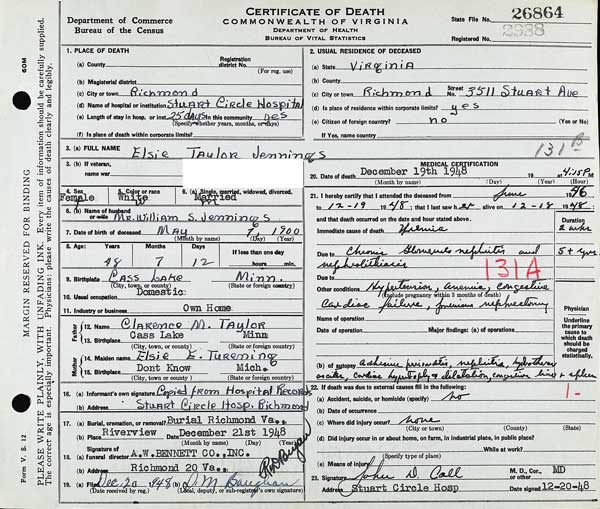 CERTIFICATE OF DEATH
COMMONWEALTH OF VIRGINIA
DEPARTMENT OF HEALTH
BUREAU OF VITAL STATISTICS
Department of Commerce
Bureau of the Census
State File No. 26864
Registered No. 2938
60M
MARGIN RESERVED FOR BINDING
PLEASE WRITE PLAINLY, WITH UNFADING INK. Every item of information should be carefully supplied.
The correct age is especially important. Physicians: please write the causes of death clearly and legibly.
Form V. S. 12
1. PLACE OF DEATH
(a) County
Registration district No.
(For reg. use)
(b) Magisterial district
(c) City or town Richmond
(d) Name of hospital or institution Stuart Circle Hospital
(e) Length of stay in hosp. or inst. 25 days in this community yes
(Specify whether years, months, or days)
(f) Is place of death within corporate limits?
2. USUAL RESIDENCE OF DECEASED
(a) State Virginia
(b) County
(c) City or town Richmond Street No. 3511 Stuart Ave
(d) Is place of residence within corporate limits? yes
(e) Citizen of foreign country? no (Yes or No)
If Yes, name country
131 B
3. (a) FULL NAME Elsie Taylor Jennings
3. (b) If veteran, name war
4. Sex Female
5. Color or race White
6. (a) Single, married, widowed, divorced. Married
6. (b) Name of husband or wife Mr. William S. Jennings
7. Date of birth of deceased May 7, 1900
(Month by name) (Day) (Year)
8. Age 48 7 12
If less than one day
hours min.
9. Birthplace Cass Lake Minn.
(City, town, or county) (State or foreign country)
10. Usual occupation Domestic
11. Industry or business Own Home
Father
12. Name Clarence M. Taylor
13. Birthplace Cass Lake Minn
(City, town, or county) (State or foreign country)
Mother
14. Maiden name Elsie E. Tureming
15. Birthplace Dont Know Mich.
(City, town, or county) (State or foreign country)
16. (a) Informant's own signature Copied from Hospital Records
(b) Address Stuart Circle Hosp. Richmond
17. (a) Burial, cremation, or removal Burial Richmond Va..
(b) Place Riverview Date December 21st 1948
(Month by name) (Day) (Year)
18. (a) Signature of funeral director A.W. BENNETT CO., INC.
(b) Address Richmond 20 Va..
19. (a) Dec. 20 1948 (b)
(Date received by reg.) (Local, deputy, or sub-registrar's own signature)
MEDICAL CERTIFICATION
20. Date of death December 19th 1948 19 at 4:15P M
(Month by name) (Day) (Year) (Hour)
21. I hereby certify that I attended the deceased from June 19 46
to 12-19 1948; that I last saw her alive on 12-18 1948;
and that death occurred on the date and hour stated above.
Duration
Immediate cause of death Uremia 2 wks
Due to Chronic Glomerulo nephritis and 5+ yrs
nephrolithiasis
Due to
131A
Other conditions Hypertension, anemia, congestive
(Include pregnancy within 3 months of death)
cardiac failure, previous nephrectomy
Name of operation
Date of operation Major findings: (a) of operations
Physician
Underline the primary cause to which death should be charged statistically.
(b) of autopsy
22. If death was due to external causes fill in the following:
1-
(a) Accident, suicide, or homicide (specify) no
(b) Date of occurrence
(c) Where did injury occur? none
(City or town) (County) (State)
(d) Did injury occur in or about home, on farm, in industrial place, in public place?
While at work?
(Specify type of place)
(e) Means of injury
23. Signature John D. Call M. D., Cor., MD
Address Stuart Circle Hosp Date signed 12-20-48